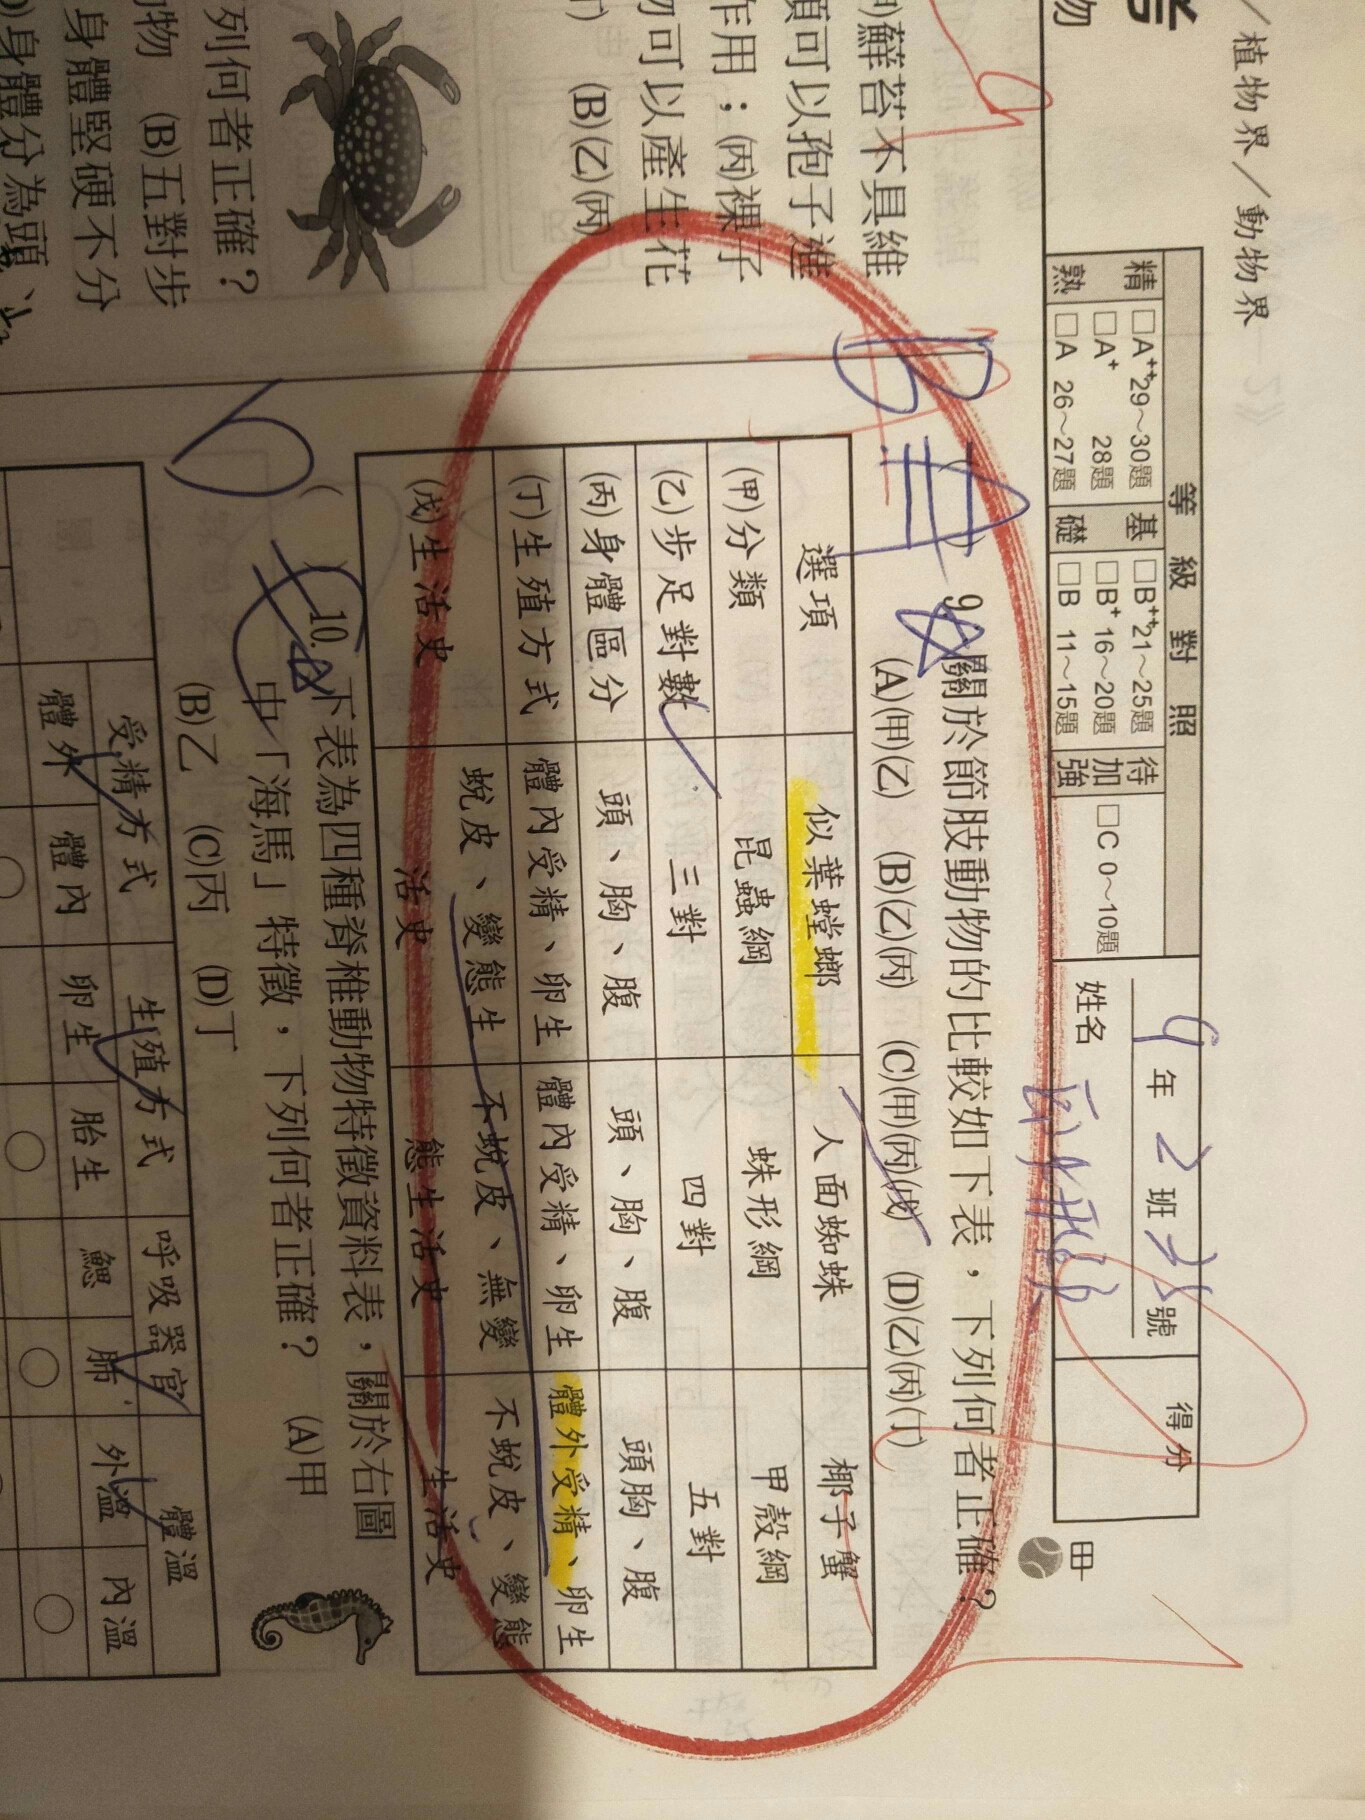 ／植物界／動物界
等級對照
精熟 □A++ 29～30題 基礎 □B++ 21～25題 待加強 □C 0～10題
□A+ 28題 □B+ 16～20題
□A 26～27題 □B 11～15題
9年2班 號
姓名
得分
物
鮮苔不具維
可以孢子進
作用；(丙)裸子
可以產生花
(B)(乙)(丙)
列何者正確？
物 (B)五對步
身體堅硬不分
身體分為頭、
B
( ) 9.關於節肢動物的比較如下表，下列何者正確？
(A)(甲)(乙) (B)(乙)(丙) (C)(甲)(丙)(戊) (D)(乙)(丙)(丁)
選項 似葉螳螂 人面蜘蛛 椰子蟹
(甲)分類 昆蟲綱 蛛形綱 甲殼綱
(乙)步足對數 三對 四對 五對
(丙)身體區分 頭、胸、腹 頭、胸、腹 頭胸、腹
(丁)生殖方式 體內受精、卵生 體內受精、卵生 體外受精、卵生
(戊)生活史 蛻皮、變態生活史 不蛻皮、無變態生活史 不蛻皮、變態生活史
( ) 10.下表為四種脊椎動物特徵資料表，關於右圖
中「海馬」特徵，下列何者正確？ (A)甲
(B)乙 (C)丙 (D)丁
受精方式 生殖方式 呼吸器官 體溫
體外 體內 卵生 胎生 鰓 肺 外溫 內溫